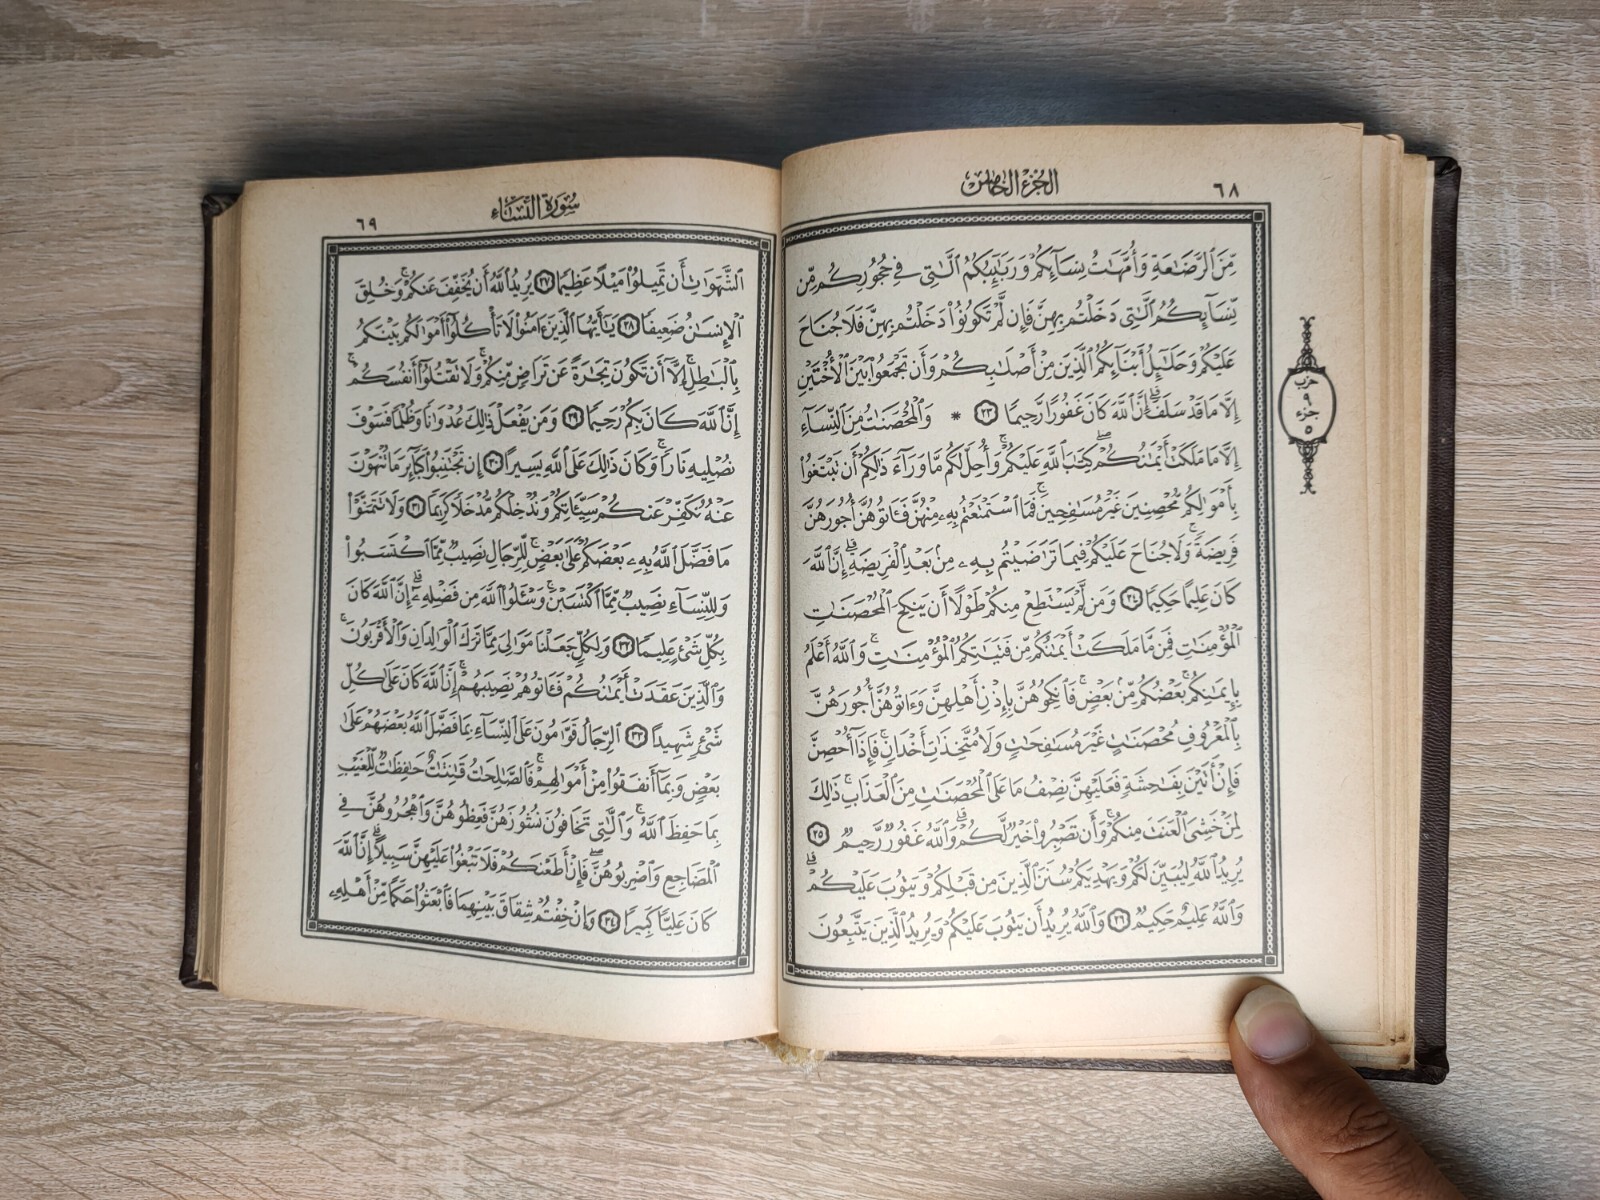 ٦٨
الجزء الخامس
مِّنَ ٱلرَّضَٰعَةِ وَأُمَّهَٰتُ نِسَآئِكُمْ وَرَبَٰٓئِبُكُمُ ٱلَّٰتِى فِى حُجُورِكُم مِّن
نِّسَآئِكُمُ ٱلَّٰتِى دَخَلْتُم بِهِنَّ فَإِن لَّمْ تَكُونُوا۟ دَخَلْتُم بِهِنَّ فَلَا جُنَاحَ
عَلَيْكُمْ وَحَلَٰٓئِلُ أَبْنَآئِكُمُ ٱلَّذِينَ مِنْ أَصْلَٰبِكُمْ وَأَن تَجْمَعُوا۟ بَيْنَ ٱلْأُخْتَيْنِ
إِلَّا مَا قَدْ سَلَفَ ۗ إِنَّ ٱللَّهَ كَانَ غَفُورًا رَّحِيمًا ٢٣ * وَٱلْمُحْصَنَٰتُ مِنَ ٱلنِّسَآءِ
إِلَّا مَا مَلَكَتْ أَيْمَٰنُكُمْ ۖ كِتَٰبَ ٱللَّهِ عَلَيْكُمْ ۚ وَأُحِلَّ لَكُم مَّا وَرَآءَ ذَٰلِكُمْ أَن تَبْتَغُوا۟
بِأَمْوَٰلِكُم مُّحْصِنِينَ غَيْرَ مُسَٰفِحِينَ ۚ فَمَا ٱسْتَمْتَعْتُم بِهِۦ مِنْهُنَّ فَـَٔاتُوهُنَّ أُجُورَهُنَّ
فَرِيضَةً ۚ وَلَا جُنَاحَ عَلَيْكُمْ فِيمَا تَرَٰضَيْتُم بِهِۦ مِنۢ بَعْدِ ٱلْفَرِيضَةِ ۗ إِنَّ ٱللَّهَ
كَانَ عَلِيمًا حَكِيمًا ٢٤ وَمَن لَّمْ يَسْتَطِعْ مِنكُمْ طَوْلًا أَن يَنكِحَ ٱلْمُحْصَنَٰتِ
ٱلْمُؤْمِنَٰتِ فَمِن مَّا مَلَكَتْ أَيْمَٰنُكُم مِّن فَتَيَٰتِكُمُ ٱلْمُؤْمِنَٰتِ ۚ وَٱللَّهُ أَعْلَمُ
بِإِيمَٰنِكُم ۚ بَعْضُكُم مِّنۢ بَعْضٍ ۚ فَٱنكِحُوهُنَّ بِإِذْنِ أَهْلِهِنَّ وَءَاتُوهُنَّ أُجُورَهُنَّ
بِٱلْمَعْرُوفِ مُحْصَنَٰتٍ غَيْرَ مُسَٰفِحَٰتٍ وَلَا مُتَّخِذَٰتِ أَخْدَانٍ ۚ فَإِذَآ أُحْصِنَّ
فَإِنْ أَتَيْنَ بِفَٰحِشَةٍ فَعَلَيْهِنَّ نِصْفُ مَا عَلَى ٱلْمُحْصَنَٰتِ مِنَ ٱلْعَذَابِ ۚ ذَٰلِكَ
لِمَنْ خَشِىَ ٱلْعَنَتَ مِنكُمْ ۚ وَأَن تَصْبِرُوا۟ خَيْرٌ لَّكُمْ ۗ وَٱللَّهُ غَفُورٌ رَّحِيمٌ ٢٥
يُرِيدُ ٱللَّهُ لِيُبَيِّنَ لَكُمْ وَيَهْدِيَكُمْ سُنَنَ ٱلَّذِينَ مِن قَبْلِكُمْ وَيَتُوبَ عَلَيْكُمْ ۗ
وَٱللَّهُ عَلِيمٌ حَكِيمٌ ٢٦ وَٱللَّهُ يُرِيدُ أَن يَتُوبَ عَلَيْكُمْ وَيُرِيدُ ٱلَّذِينَ يَتَّبِعُونَ
حزب
٩
جزء
٥
سورة النساء
٦٩
ٱلشَّهَوَٰتِ أَن تَمِيلُوا۟ مَيْلًا عَظِيمًا ٢٧ يُرِيدُ ٱللَّهُ أَن يُخَفِّفَ عَنكُمْ ۚ وَخُلِقَ
ٱلْإِنسَٰنُ ضَعِيفًا ٢٨ يَٰٓأَيُّهَا ٱلَّذِينَ ءَامَنُوا۟ لَا تَأْكُلُوٓا۟ أَمْوَٰلَكُم بَيْنَكُم
بِٱلْبَٰطِلِ إِلَّآ أَن تَكُونَ تِجَٰرَةً عَن تَرَاضٍ مِّنكُمْ ۚ وَلَا تَقْتُلُوٓا۟ أَنفُسَكُمْ ۚ
إِنَّ ٱللَّهَ كَانَ بِكُمْ رَحِيمًا ٢٩ وَمَن يَفْعَلْ ذَٰلِكَ عُدْوَٰنًا وَظُلْمًا فَسَوْفَ
نُصْلِيهِ نَارًا ۚ وَكَانَ ذَٰلِكَ عَلَى ٱللَّهِ يَسِيرًا ٣٠ إِن تَجْتَنِبُوا۟ كَبَآئِرَ مَا تُنْهَوْنَ
عَنْهُ نُكَفِّرْ عَنكُمْ سَيِّـَٔاتِكُمْ وَنُدْخِلْكُم مُّدْخَلًا كَرِيمًا ٣١ وَلَا تَتَمَنَّوْا۟
مَا فَضَّلَ ٱللَّهُ بِهِۦ بَعْضَكُمْ عَلَىٰ بَعْضٍ ۚ لِّلرِّجَالِ نَصِيبٌ مِّمَّا ٱكْتَسَبُوا۟
وَلِلنِّسَآءِ نَصِيبٌ مِّمَّا ٱكْتَسَبْنَ ۚ وَسْـَٔلُوا۟ ٱللَّهَ مِن فَضْلِهِۦٓ ۗ إِنَّ ٱللَّهَ كَانَ
بِكُلِّ شَىْءٍ عَلِيمًا ٣٢ وَلِكُلٍّ جَعَلْنَا مَوَٰلِىَ مِمَّا تَرَكَ ٱلْوَٰلِدَانِ وَٱلْأَقْرَبُونَ ۚ
وَٱلَّذِينَ عَقَدَتْ أَيْمَٰنُكُمْ فَـَٔاتُوهُمْ نَصِيبَهُمْ ۚ إِنَّ ٱللَّهَ كَانَ عَلَىٰ كُلِّ
شَىْءٍ شَهِيدًا ٣٣ ٱلرِّجَالُ قَوَّٰمُونَ عَلَى ٱلنِّسَآءِ بِمَا فَضَّلَ ٱللَّهُ بَعْضَهُمْ عَلَىٰ
بَعْضٍ وَبِمَآ أَنفَقُوا۟ مِنْ أَمْوَٰلِهِمْ ۚ فَٱلصَّٰلِحَٰتُ قَٰنِتَٰتٌ حَٰفِظَٰتٌ لِّلْغَيْبِ
بِمَا حَفِظَ ٱللَّهُ ۚ وَٱلَّٰتِى تَخَافُونَ نُشُوزَهُنَّ فَعِظُوهُنَّ وَٱهْجُرُوهُنَّ فِى
ٱلْمَضَاجِعِ وَٱضْرِبُوهُنَّ ۖ فَإِنْ أَطَعْنَكُمْ فَلَا تَبْغُوا۟ عَلَيْهِنَّ سَبِيلًا ۗ إِنَّ ٱللَّهَ
كَانَ عَلِيًّا كَبِيرًا ٣٤ وَإِنْ خِفْتُمْ شِقَاقَ بَيْنِهِمَا فَٱبْعَثُوا۟ حَكَمًا مِّنْ أَهْلِهِۦ